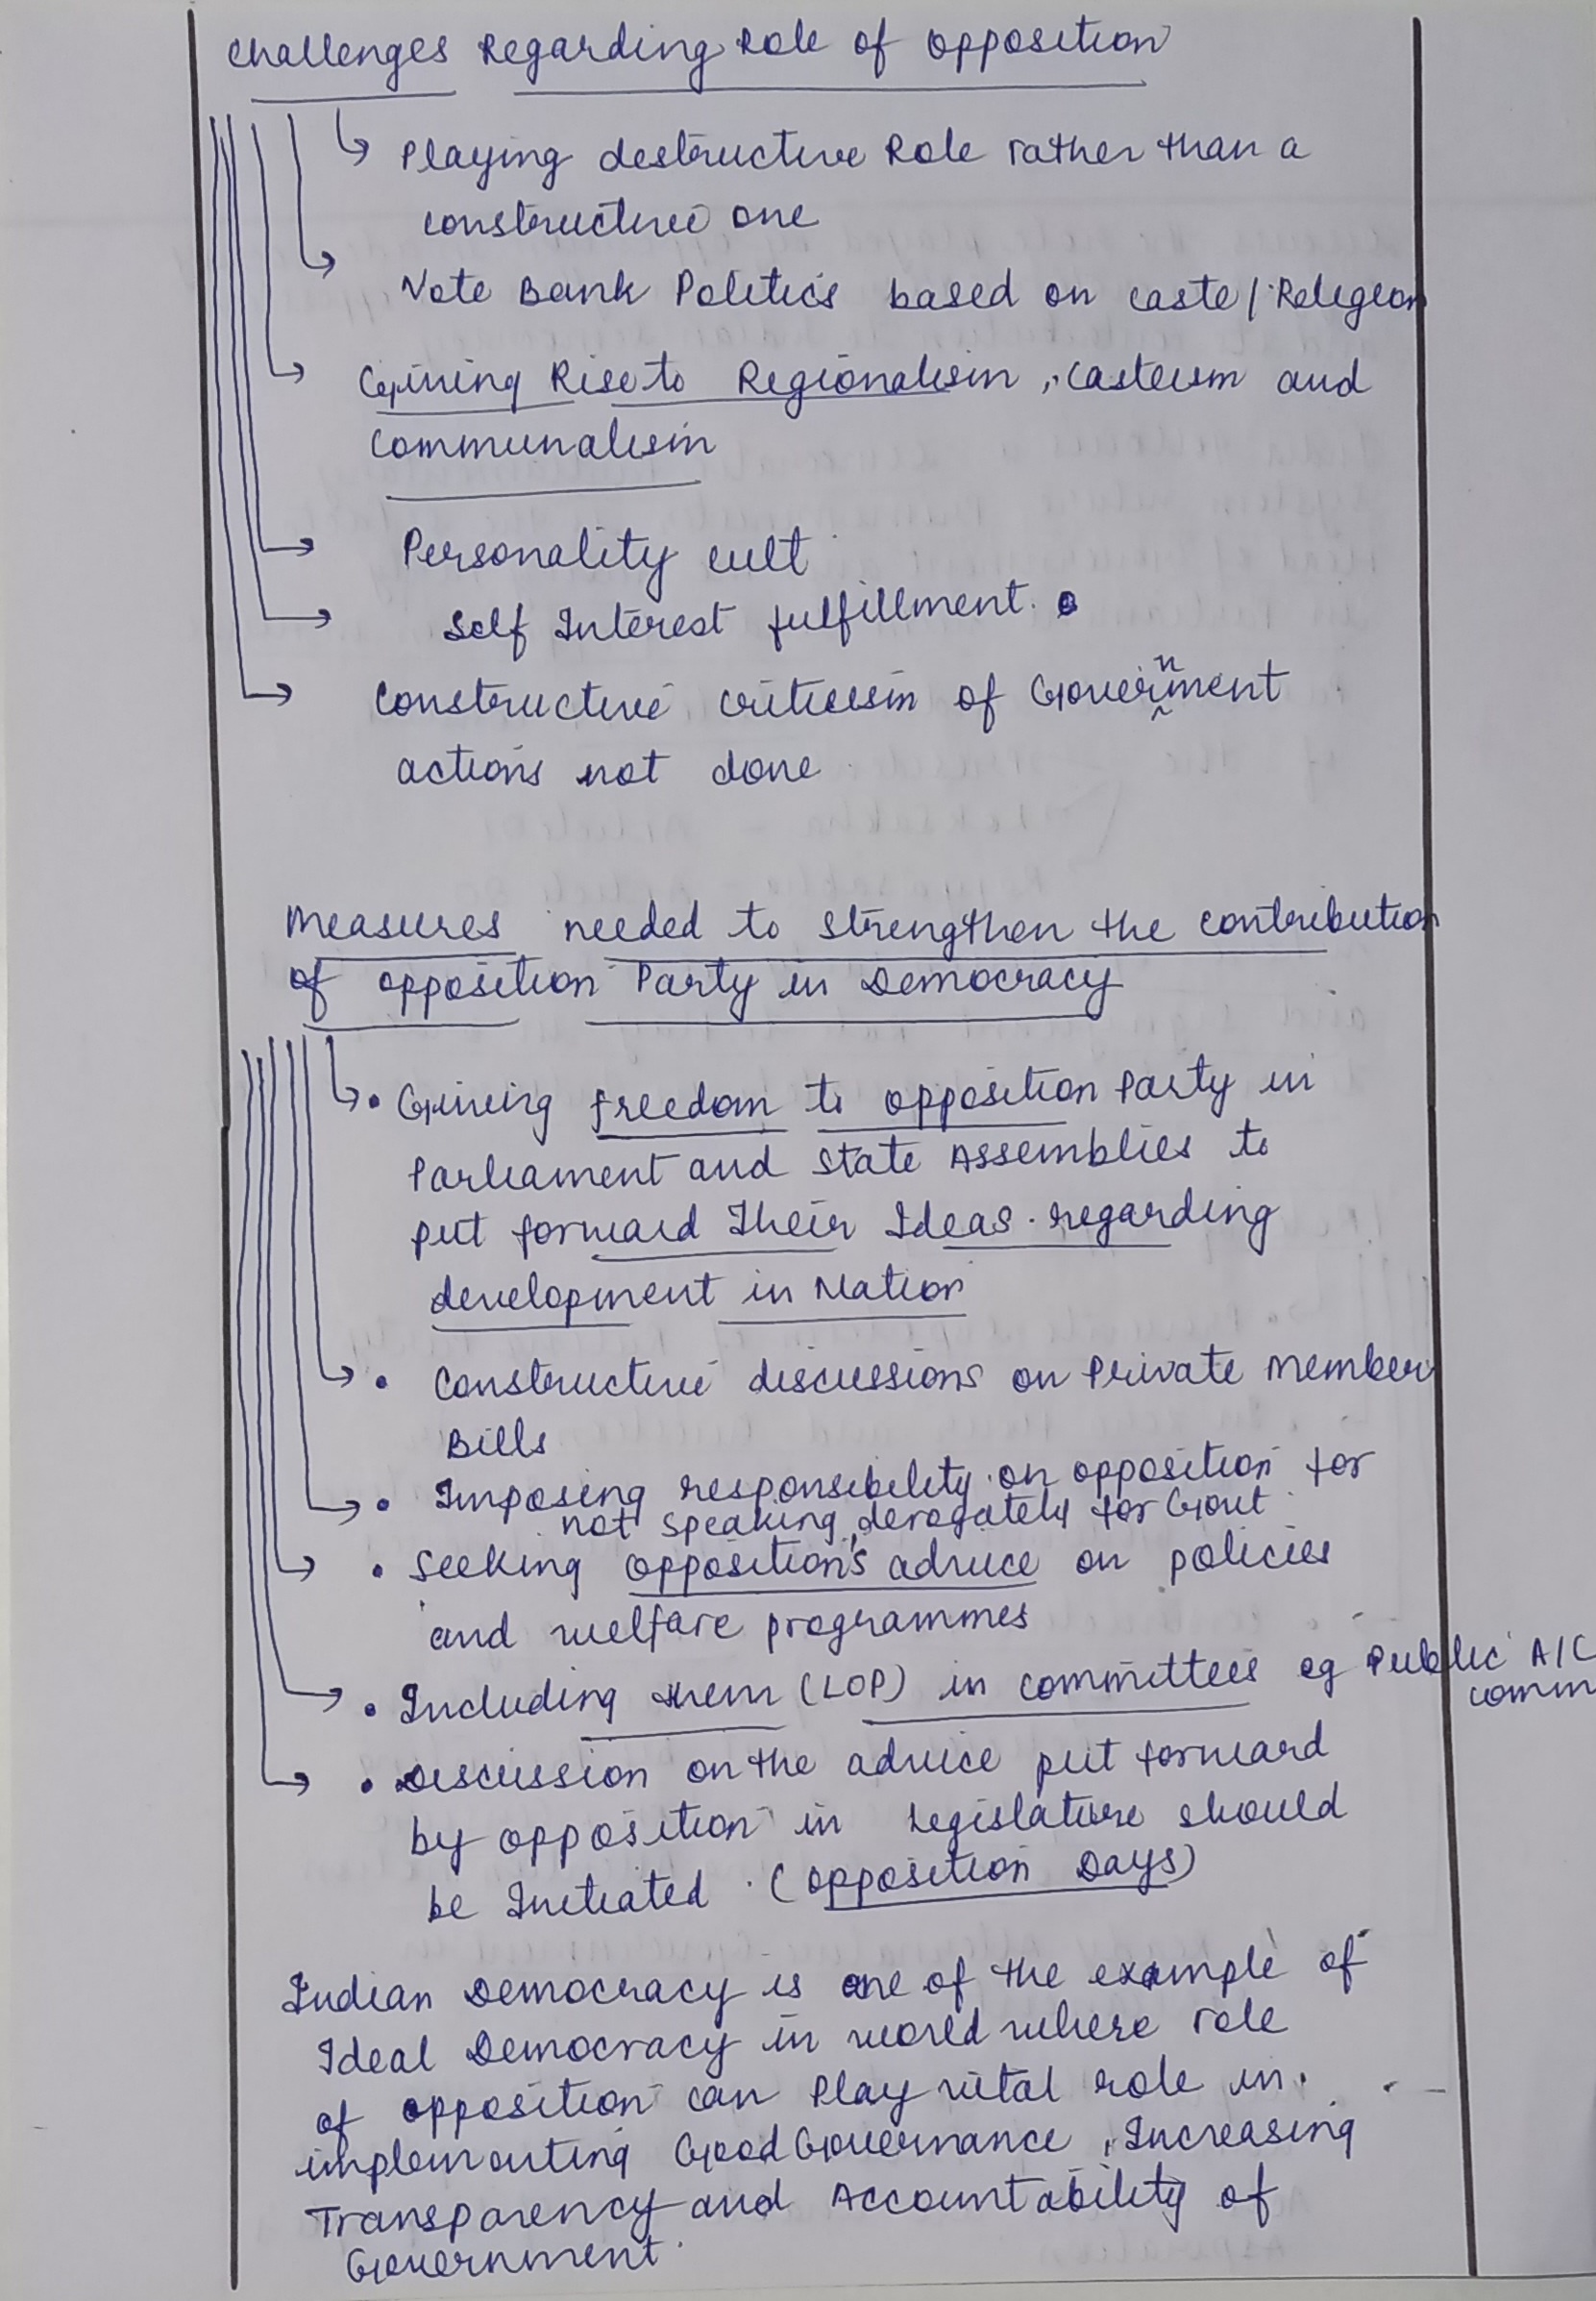 Challenges Regarding Role of opposition
Playing destructive Role rather than a
constructive one
Vote Bank Politics based on caste / Religion
Giving Rise to Regionalism, Casteism and
Communalism
Personality cult
Self Interest fulfillment.
Constructive criticism of Government
actions not done
Measures needed to strengthen the contribution
of opposition Party in Democracy
• Giving freedom to opposition Party in
Parliament and State Assemblies to
put forward Their Ideas regarding
development in Nation
• Constructive discussions on Private Member
Bills
• Imposing responsibility on opposition for
not speaking derogately for Govt
• Seeking opposition's advice on policies
and welfare programmes
• Including them (LOP) in committees eg Public A/C
comm
• Discussion on the advice put forward
by opposition in legislature should
be Initiated. (Opposition Days)
Indian Democracy is one of the example of
Ideal Democracy in world where role
of opposition can Play vital role in
implementing Good Governance, Increasing
Transparency and Accountability of
Government.